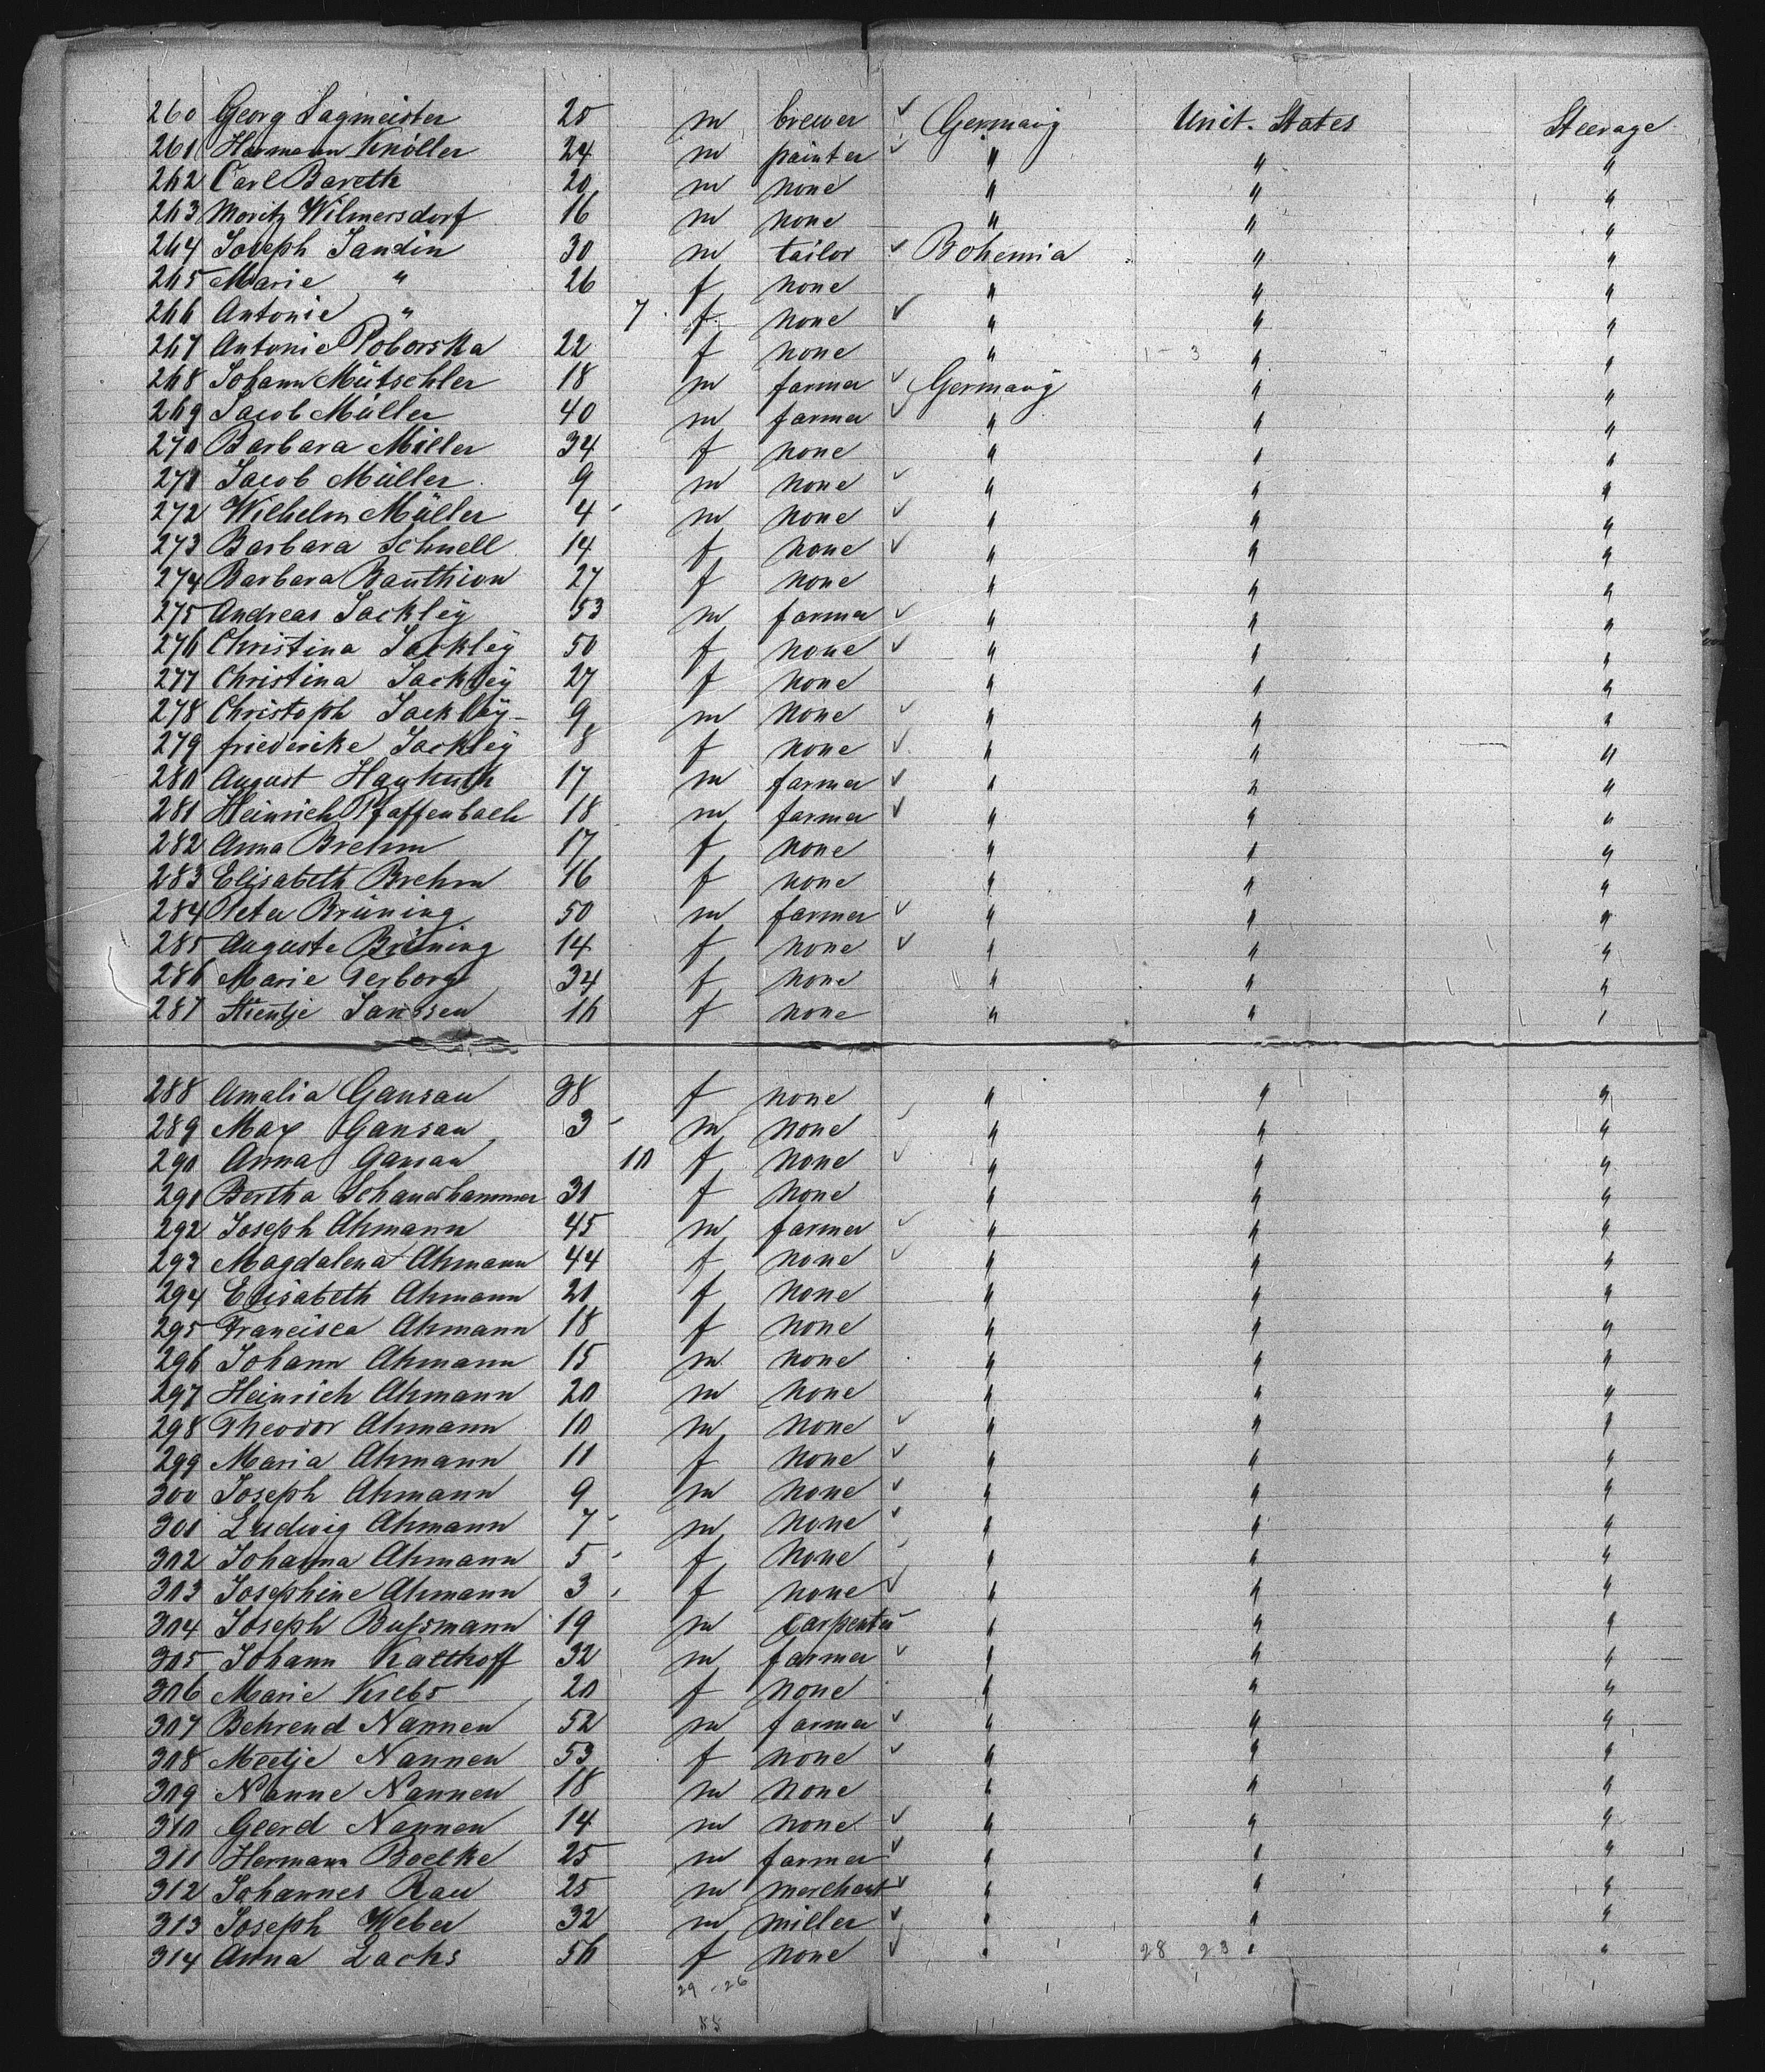 260 Georg Sagmeister 25 m brewer ✓ Germany Unit. States Steerage
261 Hermann Knöller 24 m painter ✓ " " "
262 Carl Bareth 20 m none " " "
263 Moritz Wilmersdorf 16 m none " " "
264 Joseph Jandin 30 m tailor ✓ Bohemia " "
265 Marie " 26 f none " " "
266 Antonie " 7 f none ✓ " " "
267 Antonie Poborska 22 f none " 1 - 3 " "
268 Johann Mütschler 18 m farmer ✓ Germany " "
269 Jacob Müller 40 m farmer ✓ " " "
270 Barbara Müller 34 f none " " "
271 Jacob Müller 9 m none ✓ " " "
272 Wilhelm Müller 4 m none ✓ " " "
273 Barbara Schnell 14 f none ✓ " " "
274 Barbara Bauthion 27 f none " " "
275 Andreas Jackley 53 m farmer ✓ " " "
276 Christina Jackley 50 f none ✓ " " "
277 Christina Jackley 27 f none " " "
278 Christoph Jackley 9 m none ✓ " " "
279 friederike Jackley 8 f none ✓ " " "
280 August 17 m farmer ✓ " " "
281 Heinrich Pfaffenbach 18 m farmer ✓ " " "
282 Anna Brehm 17 f none " " "
283 Elisabeth Brehm 16 f none " " "
284 Peter Brüning 50 m farmer ✓ " " "
285 Auguste Brüning 14 f none ✓ " " "
286 Marie Terborg 34 f none " " "
287 Stientje Janssen 16 f none " " "
288 Amalia Gansau 38 f none " " "
289 Max Gansau 3 m none ✓ " " "
290 Anna Gansau 10 f none ✓ " " "
291 Bertha Schauerhammer 31 f none " " "
292 Joseph Ahmann 45 m farmer ✓ " " "
293 Magdalena Ahmann 44 f none ✓ " " "
294 Elisabeth Ahmann 21 f none " " "
295 Francisca Ahmann 18 f none " " "
296 Johann Ahmann 15 m none " " "
297 Heinrich Ahmann 20 m none " " "
298 Theodor Ahmann 10 m none ✓ " " "
299 Maria Ahmann 11 f none ✓ " " "
300 Joseph Ahmann 9 m none ✓ " " "
301 Ludwig Ahmann 7 m none ✓ " " "
302 Johanna Ahmann 5 f none ✓ " " "
303 Josephine Ahmann 3 f none ✓ " " "
304 Joseph Bußmann 19 m carpenter " " "
305 Johann Katthoff 32 m farmer ✓ " " "
306 Marie Krebs 20 f none " " "
307 Behrend Nannen 52 m farmer ✓ " " "
308 Meetje Nannen 53 f none ✓ " " "
309 Nanne Nannen 18 m none " " "
310 Geerd Nannen 14 m none ✓ " " "
311 Hermann Boelke 25 m farmer ✓ " " "
312 Johannes Rau 25 m merchant ✓ " " "
313 Joseph Weber 32 m miller ✓ " " "
314 Anna Lachs 56 f none ✓ " 28 23 " "
29 - 26